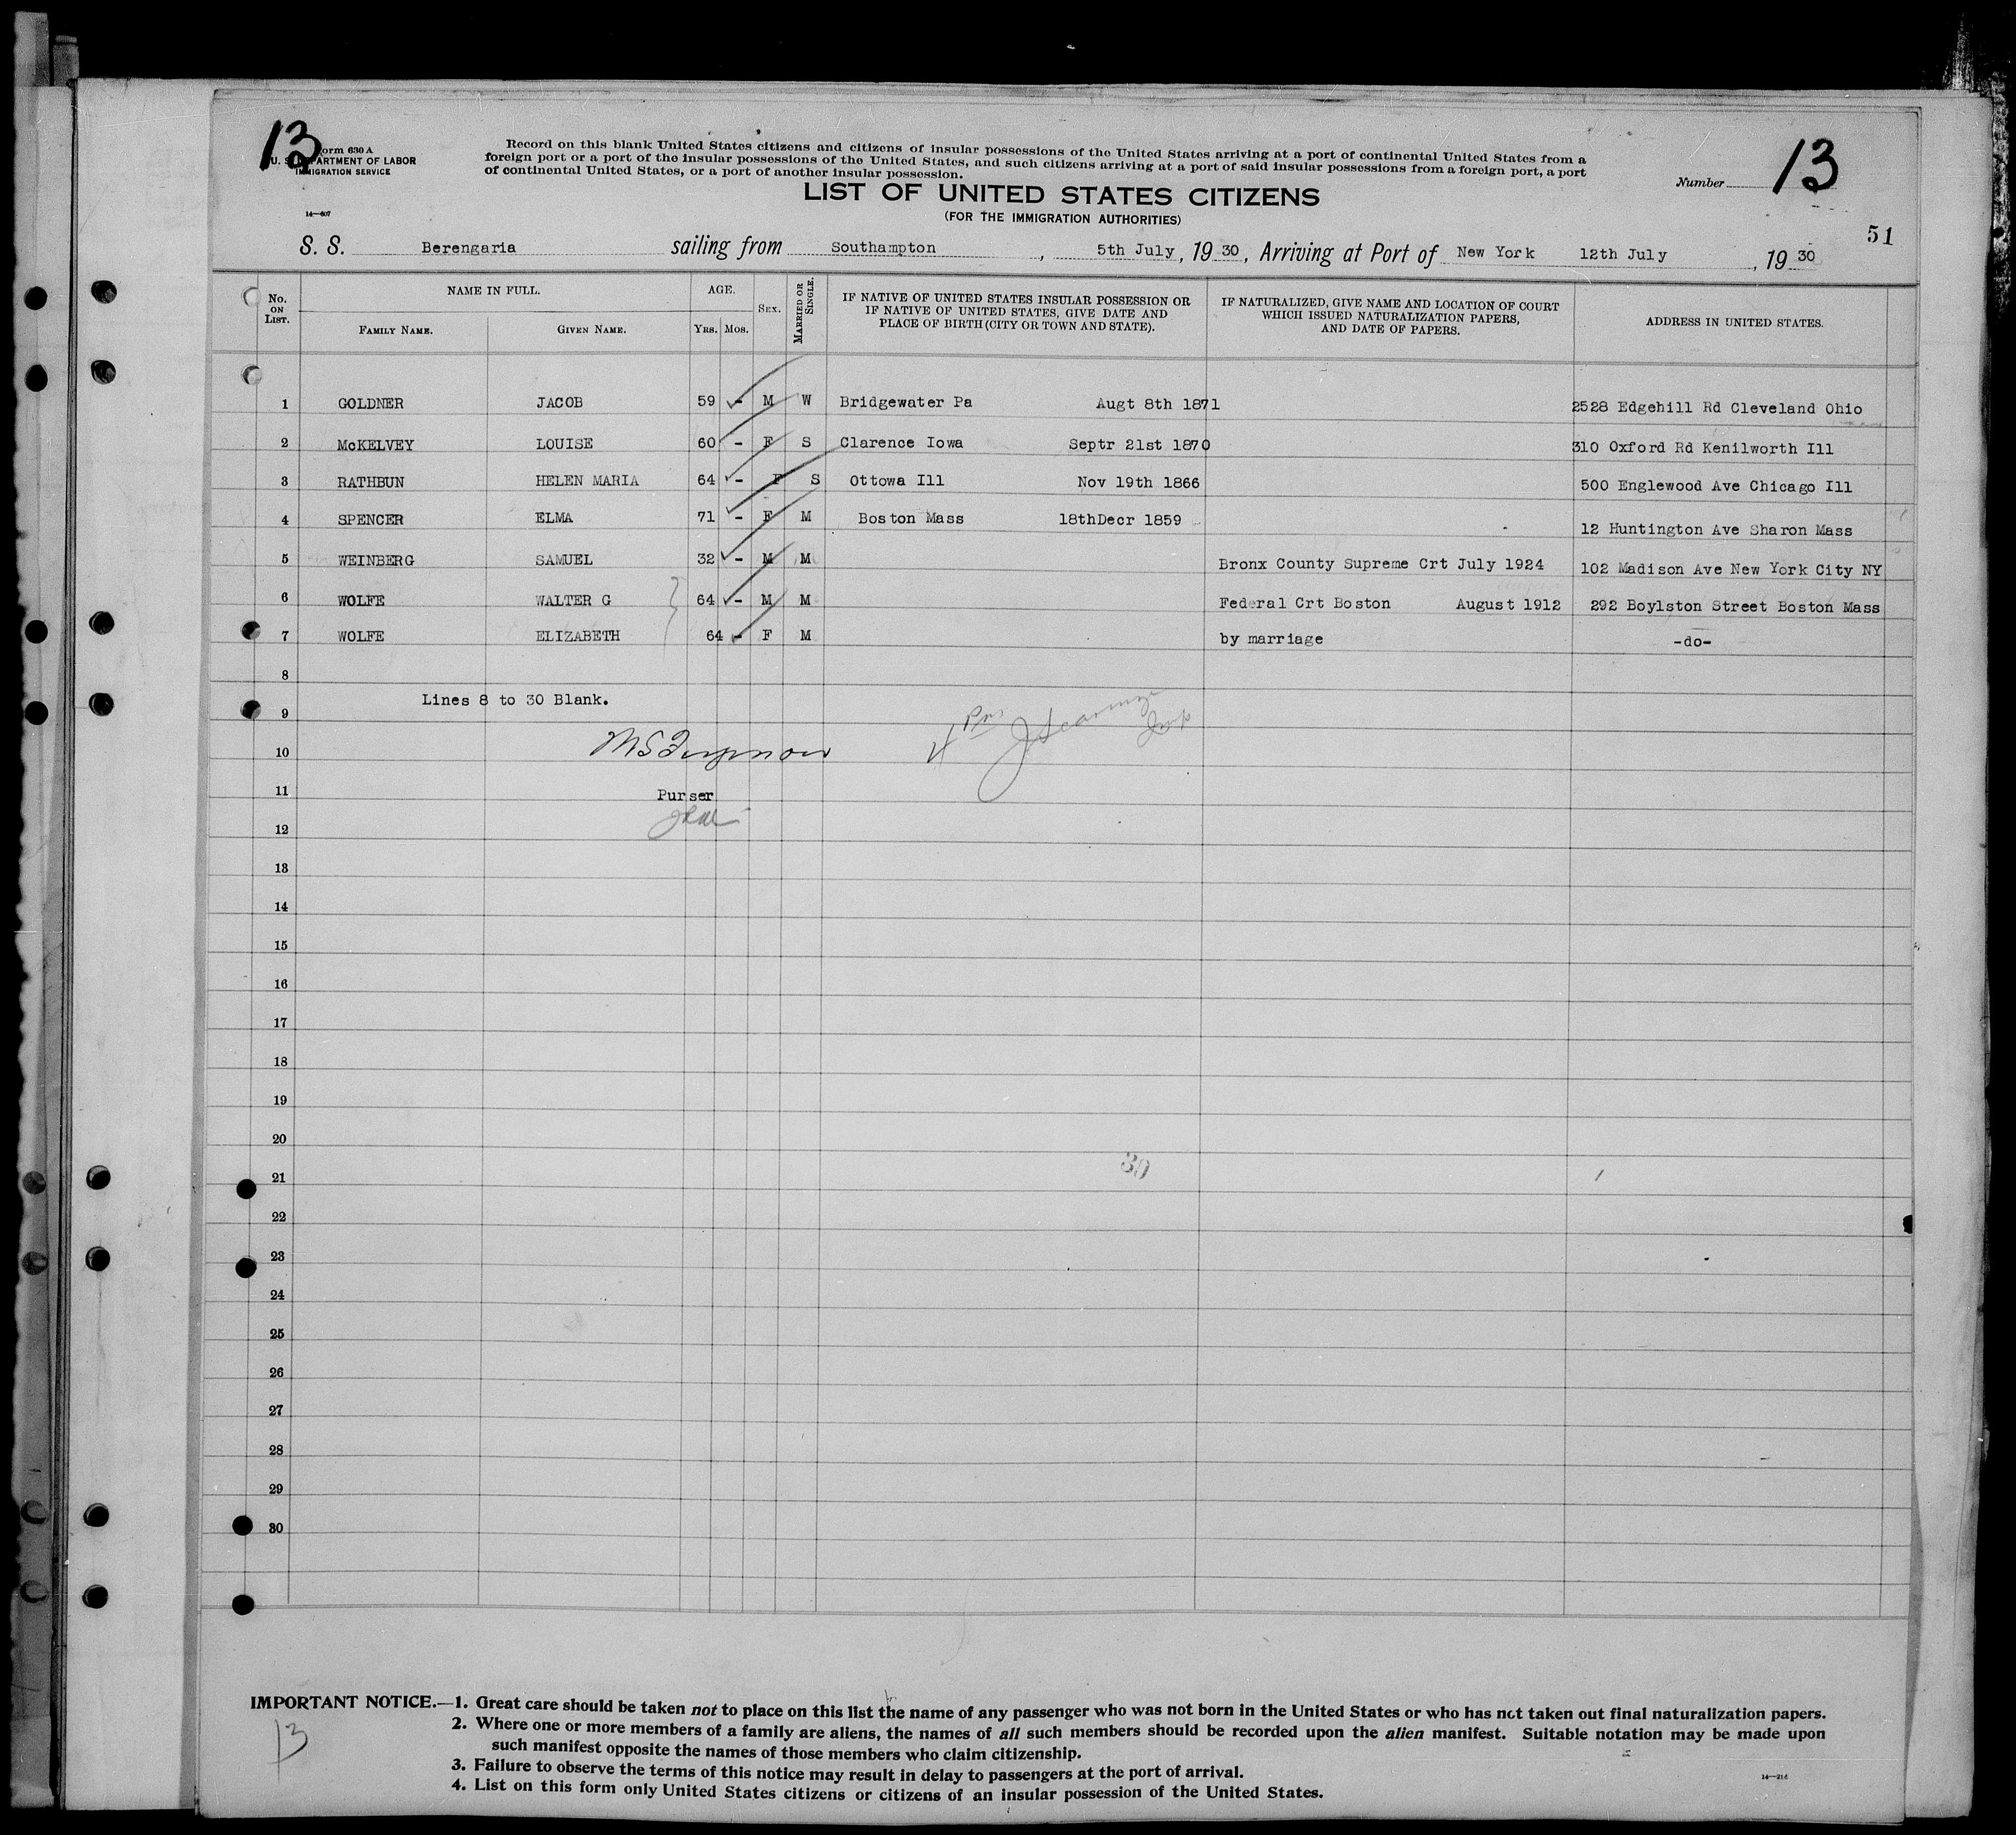 13
Form 630 A
U. S. DEPARTMENT OF LABOR
IMMIGRATION SERVICE
14—607
Record on this blank United States citizens and citizens of insular possessions of the United States arriving at a port of continental United States from a
foreign port or a port of the insular possessions of the United States, and such citizens arriving at a port of said insular possessions from a foreign port, a port
of continental United States, or a port of another insular possession.
LIST OF UNITED STATES CITIZENS
(FOR THE IMMIGRATION AUTHORITIES)
Number 13
51
S. S. Berengaria sailing from Southampton, 5th July, 19 30, Arriving at Port of New York 12th July, 19 30
No. ON LIST.
NAME IN FULL.
FAMILY NAME.
GIVEN NAME.
AGE.
YRS. MOS.
SEX.
MARRIED OR SINGLE.
IF NATIVE OF UNITED STATES INSULAR POSSESSION OR
IF NATIVE OF UNITED STATES, GIVE DATE AND
PLACE OF BIRTH (CITY OR TOWN AND STATE).
IF NATURALIZED, GIVE NAME AND LOCATION OF COURT
WHICH ISSUED NATURALIZATION PAPERS,
AND DATE OF PAPERS.
ADDRESS IN UNITED STATES.
1 GOLDNER JACOB 59 - M W Bridgewater Pa Augt 8th 1871 2528 Edgehill Rd Cleveland Ohio
2 McKELVEY LOUISE 60 - F S Clarence Iowa Septr 21st 1870 310 Oxford Rd Kenilworth Ill
3 RATHBUN HELEN MARIA 64 - F S Ottowa Ill Nov 19th 1866 500 Englewood Ave Chicago Ill
4 SPENCER ELMA 71 - F M Boston Mass 18thDecr 1859 12 Huntington Ave Sharon Mass
5 WEINBERG SAMUEL 32 - M M Bronx County Supreme Crt July 1924 102 Madison Ave New York City NY
6 WOLFE WALTER G 64 - M M Federal Crt Boston August 1912 292 Boylston Street Boston Mass
7 WOLFE ELIZABETH 64 - F M by marriage -do-
8
Lines 8 to 30 Blank.
9
10
11
Purser
12
13
14
15
16
17
18
19
20
30
21
22
23
24
25
26
27
28
29
30
IMPORTANT NOTICE.—1. Great care should be taken not to place on this list the name of any passenger who was not born in the United States or who has not taken out final naturalization papers.
2. Where one or more members of a family are aliens, the names of all such members should be recorded upon the alien manifest. Suitable notation may be made upon
such manifest opposite the names of those members who claim citizenship.
3. Failure to observe the terms of this notice may result in delay to passengers at the port of arrival.
4. List on this form only United States citizens or citizens of an insular possession of the United States.
13
14—216